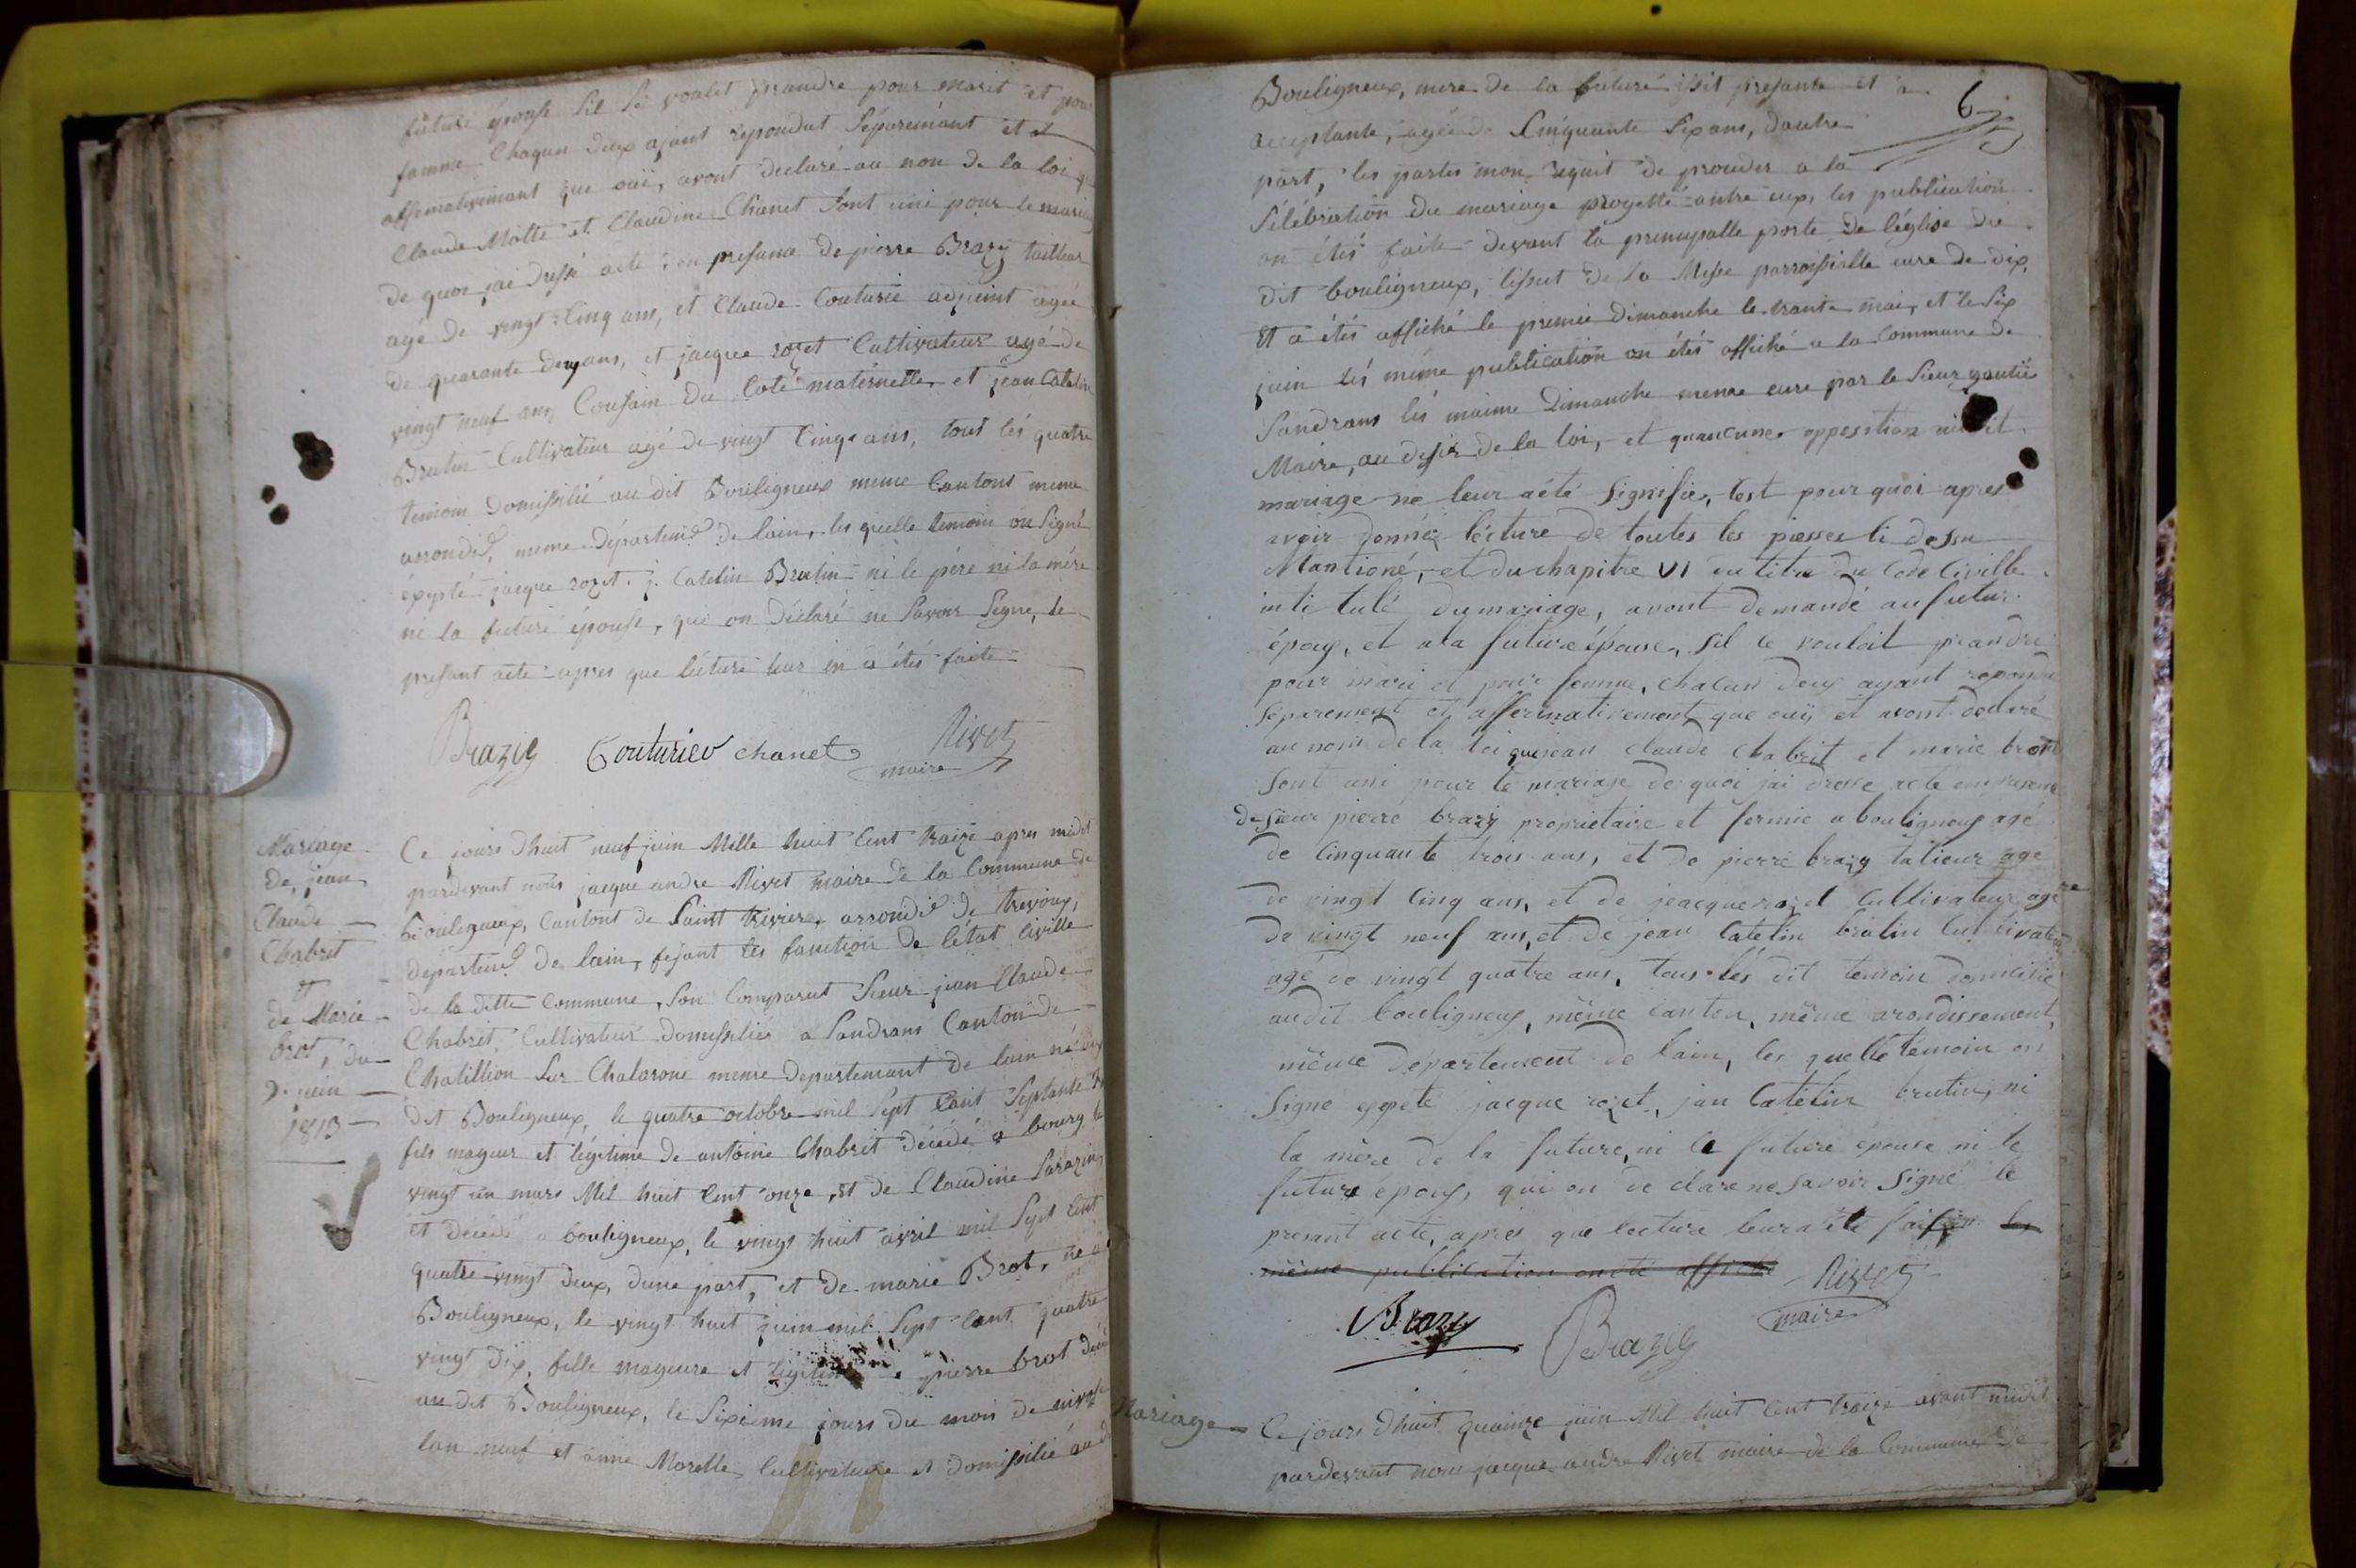 future épouse sil se voulet prandre pour marit et pour
famme Chaqun deux ajant repondut Séparémant et
affirmativement que oui, avont declaré au non de la loi que
Claude Motte et Claudine Chanet Sont uni pour le mariage
de quoi jai dressé acte en presance de pierre Brazy tailleur
agé de vingt Cinq ans, et Claude Couturié adjoint agée
de quarante deux ans, et jacque rozet Cultivateur agé de
vingt neuf ans Cousain du Coté maternelle, et jean Catelin
Brutin Cultivateur agé de vingt Cinq ans, tout lés quatre
temoin domissilié au dit Bouligneux meme Cantont meme
arrondis, meme départemt de lain, les quelle temoin on Signé
éxepté jacque rozet j. Catelin Brutin ni le pére ni la mére
ni la futuré épouse, qui on déclaré ne Savoir Signe, le
presant acte apres que lécture leur en a étés faite
Brazy Couturier chanet Rivet
maire
Mariage
de jean
Claude
Chabrit
et
de Marie
brot, du
9 juin
1813
Ce jours dhuit neuf juin Mille huit Cent traize apres midit
pardevant nous jacque andre Rivet maire de la Commune de
Bouligneux, Cantont de Saint trivier, arrondis de trevoux,
departemt de lain, fesant les fonction de létat Civille
de la ditte Commune, Son Comparut Sieur jean Claude
Chabrit, Cultivateur domissiliés a Sandrans Canton de
Chatillion Sur Chalarone meme departemant de lain né au
dit Bouligneux, le quatre octobre mil Sept Cent Septante
fils mageur et légitime de antoine Chabrit décédé a bourg le
vingt un mars Mil huit Cent onze, et de Claudine Sarazin
et décédé a bouligneux, le vingt huit avril mil Sept Cent
quatre vingt deux, dune part, et de marie Brot, né a
Bouligneux, le vingt huit juin mil Sept Cent quatre
vingt dix, fille mageure et légitime pierre brot décédé
au dit Bouligneux, le Sixieme jours du mois de nivose
lan neuf et anne Morelle, Cultivature et domissilié au dit
6
Bouligneux, mere de la futuré issit presante et a
acceptante, agée de Cinquante Six ans, dautre
part, les partis mon requit de prouder a la
Sélébration du mariage progetté antre eux, les publication
on étés faite devant la prinsipalle porte de léglise du
dit bouligneux, lissut de la Messe parroissialle eure de dix,
Et a étés affiché le premié dimanche le trante mai, et le Six
juin lés méme publication on étés affiché a la Commune de
Sandrans lés maime Dimanche meme eure par le Sieur gautié
Maire, au desir de la loi, et quaucune opposition au dit
mariage ne leur a été Signifié, Cest pour quoi apres
avoir donnéz lécture de toutes les piesses Ci dessu
Mantioné, et du chapitre VI eu titre du Code Civille
intitulé du mariage, avont demandé au futur
époux, et a la future épouse, Sil ce vouloit prandre
pour mari et pour femme, chacun deux ayant repondu
Séparement et affermativement que ouij et avont declaré
au nom de la loi que jean claude Chabrit et marie brot
Sont uni pour le mariage de quoi jai dresse acte en presence
de Sieur pierre brazy propriétaire et fermie a bouligneux agé
de Cinquante trois ans, et de pierre brazy talieur agé
de vingt Cinq ans, et de jeacque rozet Cultivateur agé
de vingt neuf ans, et de jean Catelin brutin Cultivateur
agé de vingt quatre ans, tous les dit temoin domicilie
au dit bouligneux, même canton, même arondissement,
même departement de lain, les quelle temoin on
Signe exepte jacque rozet, jan Catelin brutin, ni
la mère de la future, ni la future épouse ni le
future époux, qui on declare ne Savoir Signé le
presant acte, apres que lecture leur a été faite les
même publication on été affiché Rivet
maire
Brazy Brazy
Mariage
Ce jours dhuit quainze juin Mil huit Cent traize avant midit
pardevant nous jacque andre Rivet maire de la Commune de